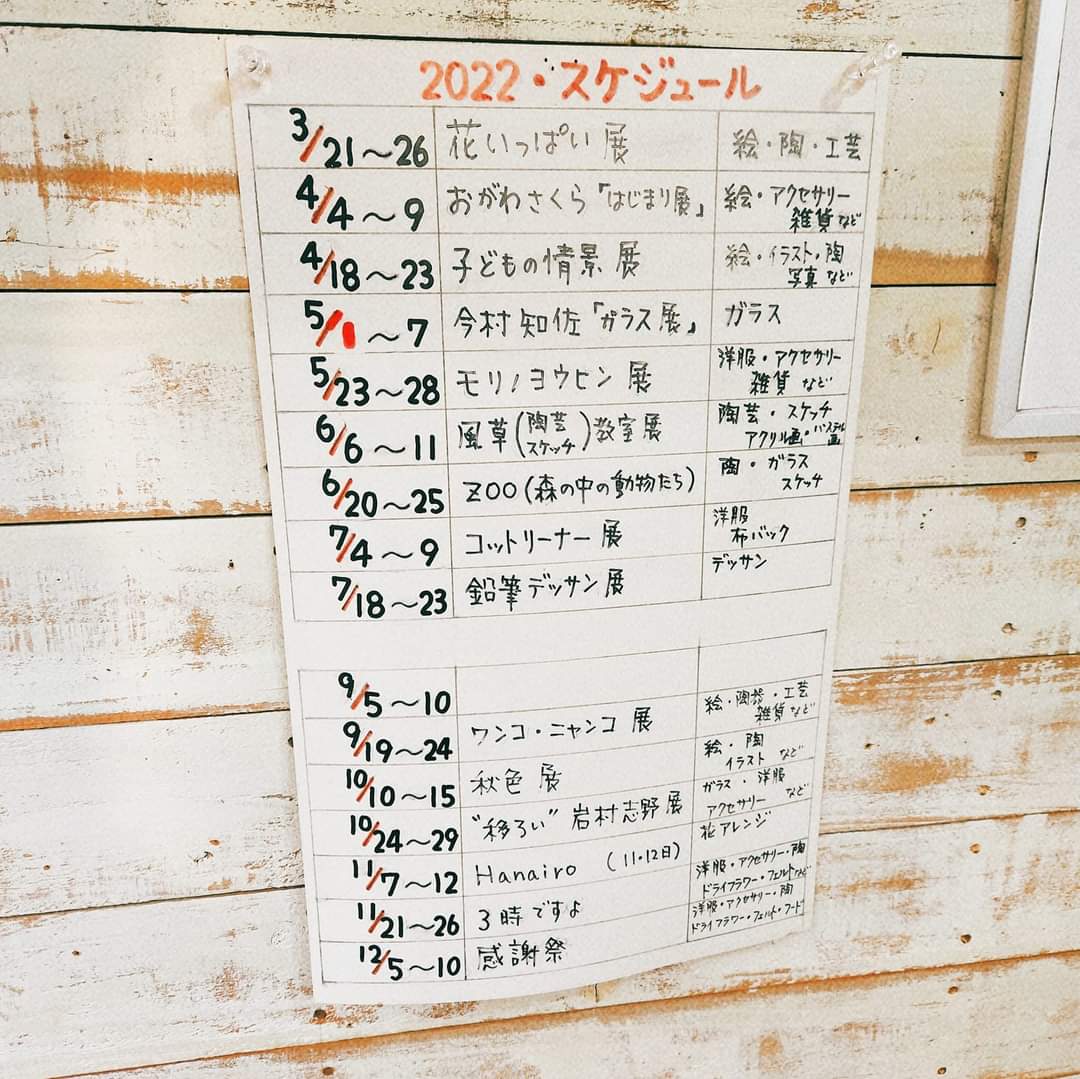 2022・スケジュール
3/21～26 花いっぱい展 絵・陶・工芸
4/4～9 おがわさくら「はじまり展」 絵・アクセサリー
雑貨など
4/18～23 子どもの情景展 絵・イラスト・陶
写真など
5/1～7 今村知佐「ガラス展」 ガラス
5/23～28 モリノヨウヒン展 洋服・アクセサリー
雑貨 など
6/6～11 風草(陶芸 スケッチ)教室展 陶芸・スケッチ
アクリル画・パステル画
6/20～25 ZOO(森の中の動物たち) 陶・ガラス
スケッチ
7/4～9 コットリーナー展 洋服
布バック
7/18～23 鉛筆デッサン展 デッサン
9/5～10
9/19～24 ワンコ・ニャンコ展 絵・陶・工芸
雑貨など
10/10～15 秋色展 絵・陶
イラスト など
10/24～29 "移ろい" 岩村志野展 ガラス・洋服
アクセサリー など
11/7～12 Hanairo (11・12日) 花アレンジ
11/21～26 3時ですよ 洋服・アクセサリー・陶
ドライフラワー・フェルトなど
12/5～10 感謝祭 洋服・アクセサリー・陶
ドライフラワー・フェルト・フード